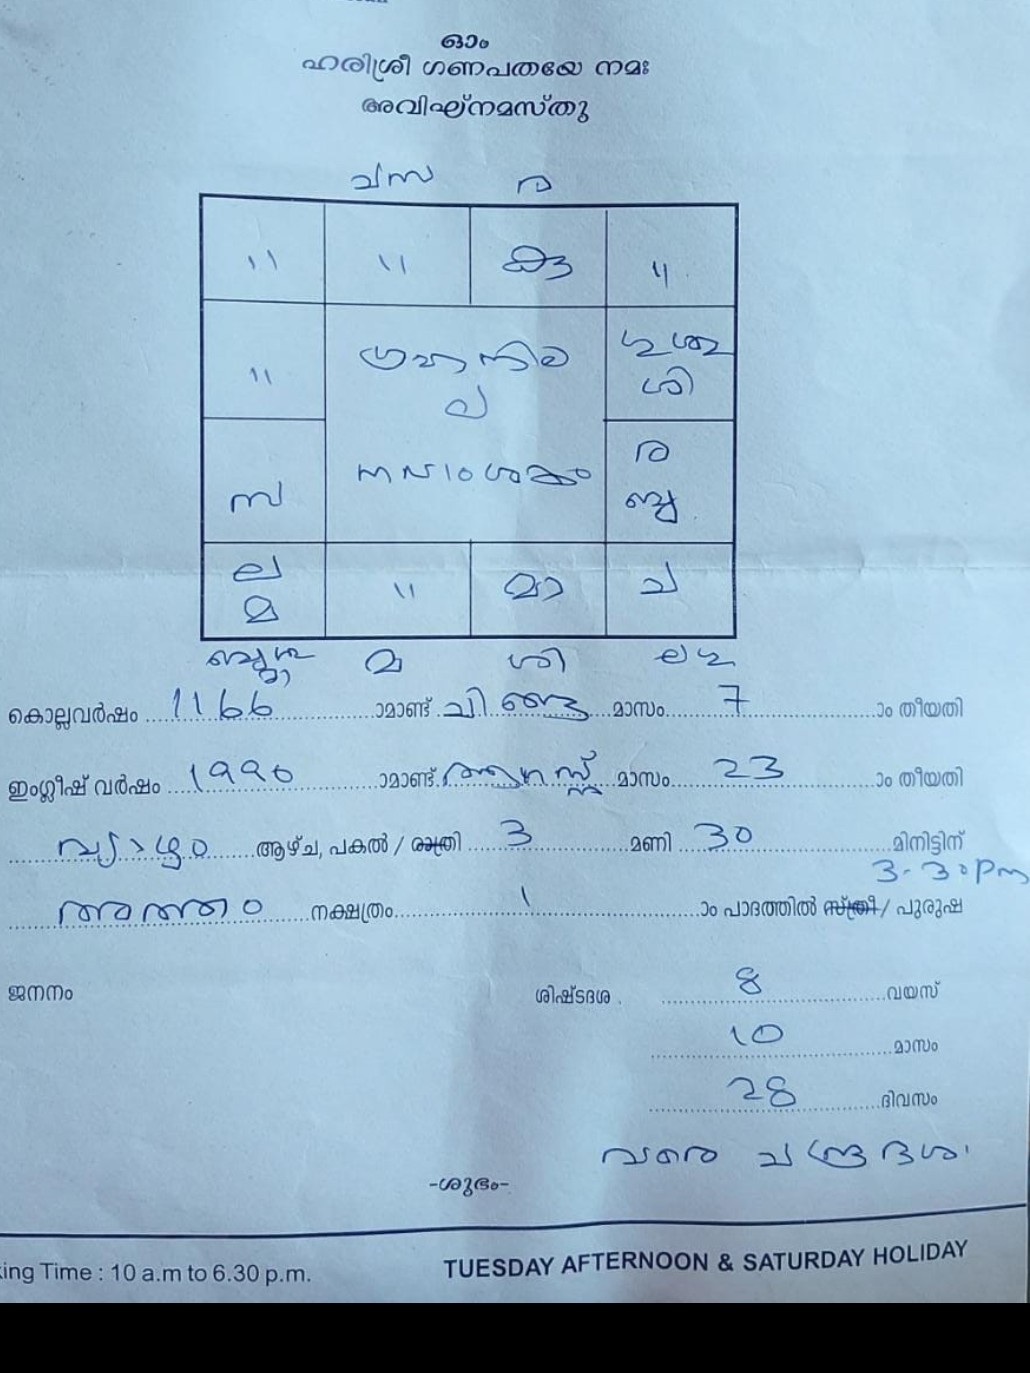 ഓം
ഹരിശ്രീ ഗണപതയേ നമഃ
അവിഘ്നമസ്തു
ച സ ര
" " കു "
" ഗ്രഹനില ഗു ശു
ശി
ല
സ നവാംശകം ര
ബു
ല
മ " മാ ച
മ ശി ല ഗു
കൊല്ലവർഷം 1166 ാമാണ്ട് ചിങ്ങ മാസം 7 ാം തീയതി
ഇംഗ്ലീഷ് വർഷം 1990 ാമാണ്ട് ആഗസ്റ്റ് മാസം 23 ാം തീയതി
വ്യാഴം ആഴ്ച, പകൽ / രാത്രി 3 മണി 30 മിനിട്ടിന്
3-30 Pm
അത്തം നക്ഷത്രം 1 ാം പാദത്തിൽ സ്ത്രീ / പുരുഷ
ജനനം ശിഷ്ടദശ . 8 വയസ്
10 മാസം
28 ദിവസം
വരെ ചന്ദ്രദശ.
-ശുഭം-
king Time : 10 a.m to 6.30 p.m. TUESDAY AFTERNOON & SATURDAY HOLIDAY